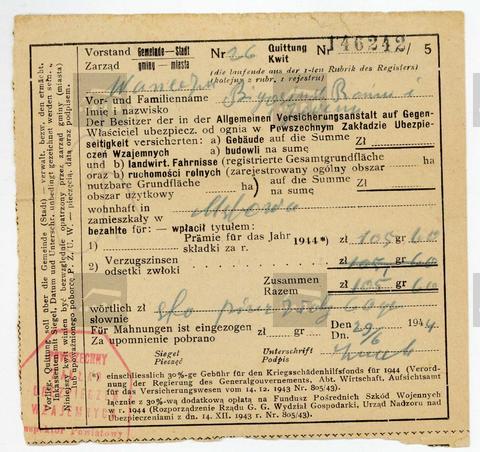 Vorstand Gemeinde-Stadt Nr 26 Quittung № 146242/5
Zarząd gminy-miasta Kwit
(die laufende aus der 1-ten Rubrik des Registers)
(kolejny z rubr. 1 rejestru)
Vor- und Familienname
Imię i nazwisko
Der Besitzer der in der Allgemeinen Versicherungsanstalt auf Gegen-
Właściciel ubezpiecz. od ognia w Powszechnym Zakładzie Ubezpie-
seitigkeit versicherten: a) Gebäude auf die Summe Zł
czeń Wzajemnych a) budowli na sumę
und b) landwirt. Fahrnisse (registrierte Gesamtgrundfläche ha
oraz b) ruchomości rolnych (zarejestrowany ogólny obszar
nutzbare Grundfläche ha) auf die Summe Zł
obszar użytkowy na sumę
wohnhaft in
zamieszkały w
bezahlte für: — wpłacił tytułem:
1) Prämie für das Jahr 1944*) zł 105 gr 60
składki za r.
2) Verzugszinsen
odsetki zwłoki
Zusammen zł 105 gr 60
Razem
wörtlich zł sto
słownie
Für Mahnungen ist eingezogen zł gr Den 29/6 1944.
Za upomnienie pobrano Dn.
Siegel Unterschrift
Pieczęć Podpis
*) einschliesslich 30%-ige Gebühr für den Kriegsschädenhilfsfonds für 1944 (Verord-
nung der Regierung des Generalgouvernements, Abt. Wirtschaft, Aufsichtsamt
für das Versicherungswesen vom 14. 12. 1943 Nr. 805/43).
łącznie z 30%-wą dodatkową opłatą na Fundusz Pośrednich Szkód Wojennych
w r. 1944 (Rozporządzenie Rządu G. G. Wydział Gospodarki, Urząd Nadzoru nad
Ubezpieczeniami z dn. 14. XII. 1943 r. Nr. 805/43).
Vorlieg. Quittung soll über die Gemeinde (Stadt) — verwalt. bezw. den ermächt.
Inkassenten mit Siegel, Datum und Unterschr. unbedingt gezeichnet werden
Niniejszy kwit winien być bezwzględnie opatrzony przez zarząd gminy (miasta)
lub upoważnionego poborcę P. Z. U. W. — pieczęcią, datą oraz podpisem.
POWSZECHNY
ZAKŁAD
UBEZPIECZEŃ
WZAJEMNYCH
Inspektor Powiatowy